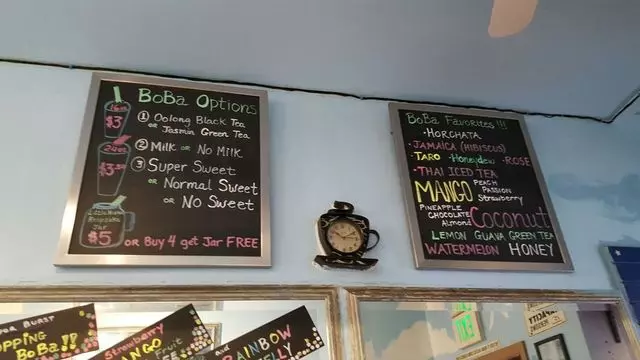 BoBa Options
16oz
$3
① Oolong Black Tea
or Jasmin Green Tea
② Milk or No Milk
24oz
③ Super Sweet
or Normal Sweet
or No Sweet
Jar
$5
or Buy 4 get Jar FREE
BoBa Favorites!!!
·HORCHATA
·JAMAICA (HIBISCUS)
TARO ·Honeydew ·ROSE
·THAI ICED TEA
MANGO PEACH
PASSION
Strawberry
PINEAPPLE
CHOCOLATE
Almond Coconut
LEMON GUAVA GREEN TEA
WATERMELON HONEY
BURST
OPPING
BoBa!!
Strawberry
MANGO
Fruit
and
RAINBOW
JELLY